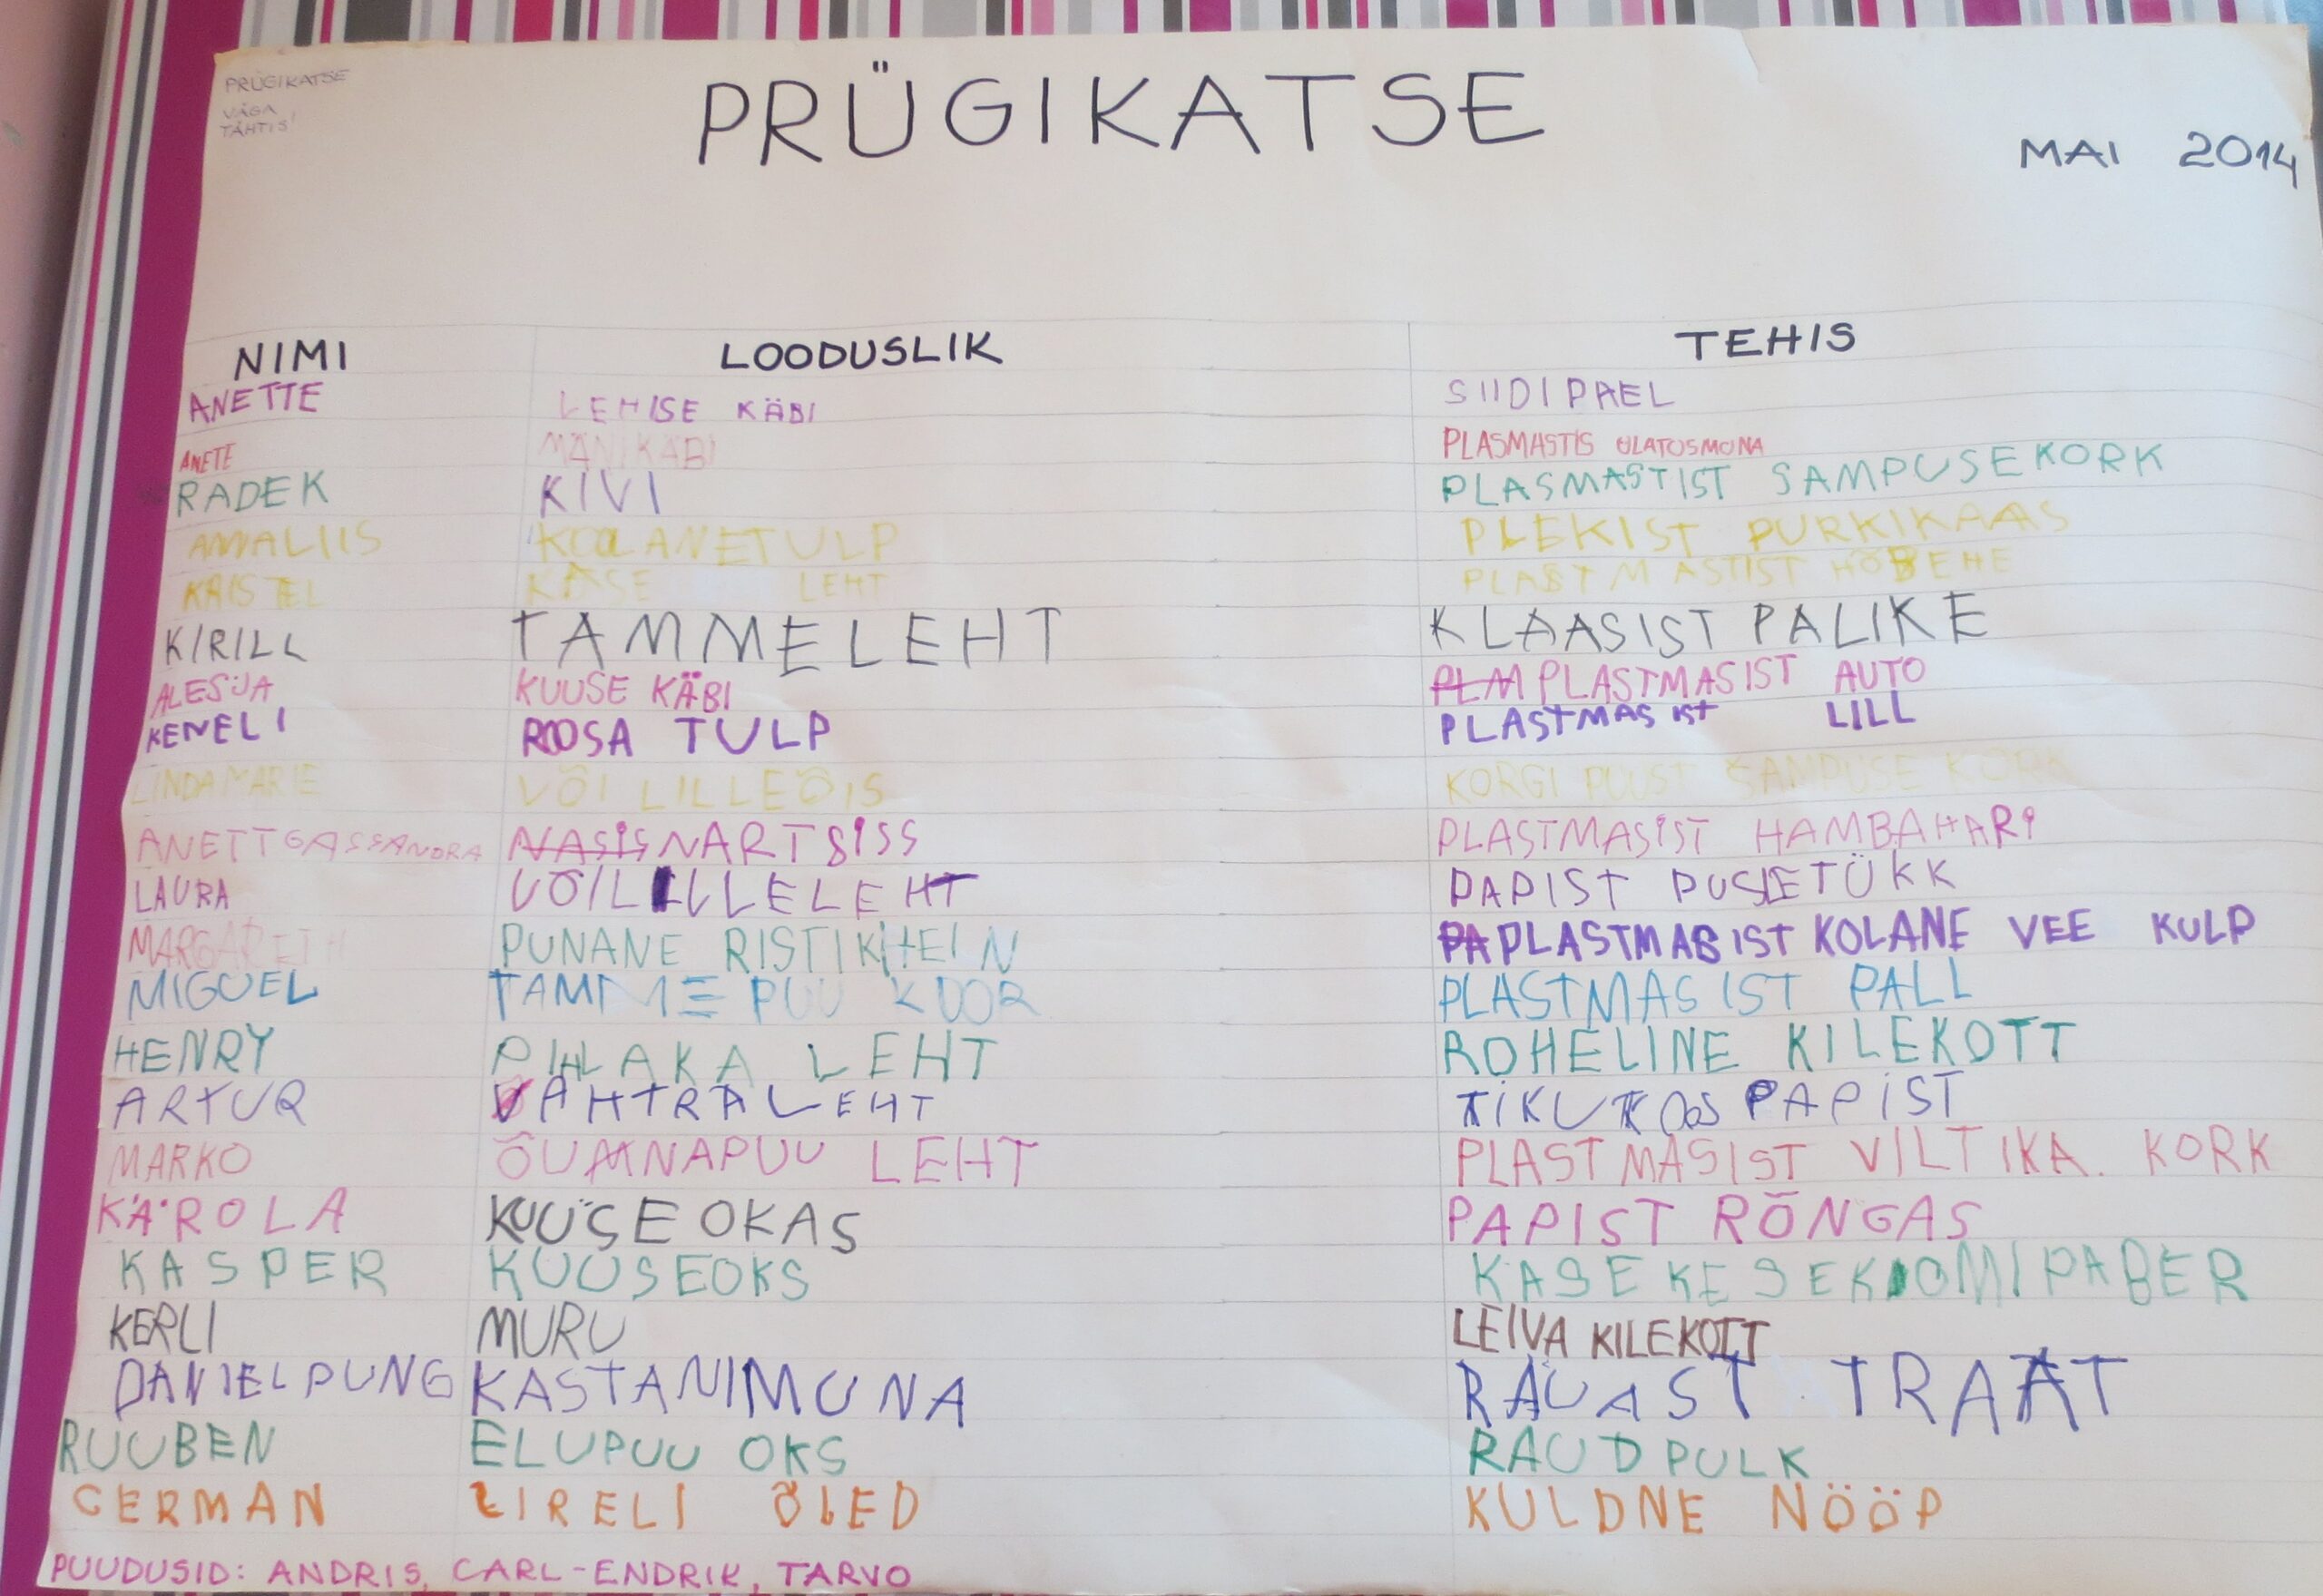 PRÜGIKATSE
VÄGA
TÄHTIS!
PRÜGIKATSE
MAI 2014
NIMI LOODUSLIK TEHIS
ANETTE LEHISE KÄBI SIIDIPAEL
ANETE MÄNIKÄBI PLASMASTIS ÜLATUSMUNA
RADEK KIVI PLASMASTIST SAMPUSEKORK
ANNALIIS KOLLANETULP PLEKIST PURKIKAAS
KRISTEL KASE LEHT PLASTMASTIST HÕBEHE
KIRILL TAMMELEHT KLAASIST PALIKE
ALESJA KUUSE KÄBI PLM PLASTMASIST AUTO
KENELI ROOSA TULP PLASTMASIST LILL
LINDAMARIE VÕILILLEÕIS KORGI PUUST SAMPUSE KORK
ANETTGASSANDRA NASIS NARTSISS PLASTMASIST HAMBAHARI
LAURA VÕILILLELEHT PAPIST PUSLETÜKK
MARGARETH PUNANE RISTIKHEIN PA PLASTMASIST KOLANE VEE KULP
MIGUEL TAMME PUU KOOR PLASTMASIST PALL
HENRY PIHLAKA LEHT ROHELINE KILEKOTT
ARTUR VAHTRALEHT TIKUTOOS PAPIST
MARKO ÕUNNAPUU LEHT PLASTMASIST VILTIKA. KORK
KÄROLA KUUSEOKAS PAPIST RÕNGAS
KASPER KUUSEOKS KASEKESEKOMIPABER
KERLI MURU LEIVA KILEKOTT
DANIELPUNG KASTANIMUNA RAUAST TRAAT
RUUBEN ELUPUU OKS RAUDPULK
GERMAN SIRELI ÕIED KULDNE NÖÖP
PUUDUSID: ANDRIS, CARL-ENDRIK, TARVO